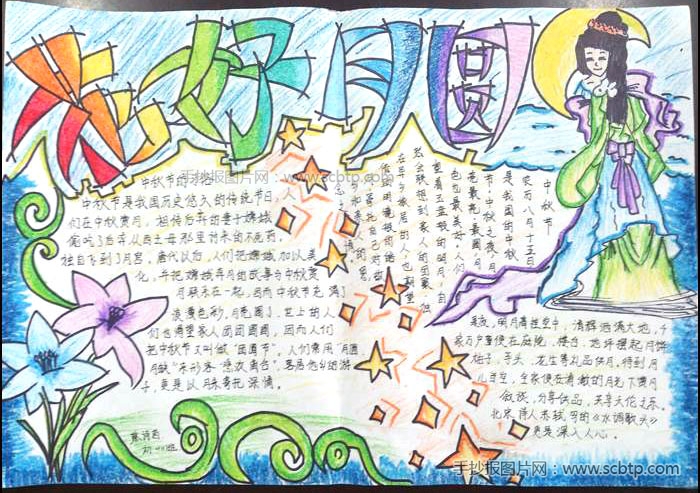 花好月圆
中秋节的
中秋节是我国历史悠久的传统节日,人
们在中秋赏月,相传后羿的妻子嫦娥
偷吃了后羿从西王母那里讨来的不死药,
独自飞到了月宫,唐代以后,人们把嫦娥加以美
化,并把嫦娥奔月的故事与中秋赏
月联系在一起,因而中秋节充满了
浪漫色彩,月亮圆了,世上的人
们也渴望家人团团圆圆,因而人们
把中秋节又叫做“团圆节”,人们常用“月圆
月缺”来形容“悲欢离合”,客居他乡的游
子,更是以月来寄托深情。
中秋节
农历八月十五日
是我国的中秋
节,中秋之夜,月
亮最亮,最圆,月
色也最美好,人们
望着玉盘般的明月,自
然会联想到家人的团聚,独
在异乡旅居的人,也期望
借
是夜,明月高挂空中,清辉洒满大地,千
家万户要便在庭院、楼台,地坪摆起月饼
柚子、芋头、花生等礼品供月,待到月
儿当空,全家便在清澈的月光下赏月
叙旧,分享供品,共享天伦之乐,
的《水调歌头》
更是深入人心。
手抄报图片网:www.scbtp.com
手抄报图片网:www.scbtp.com